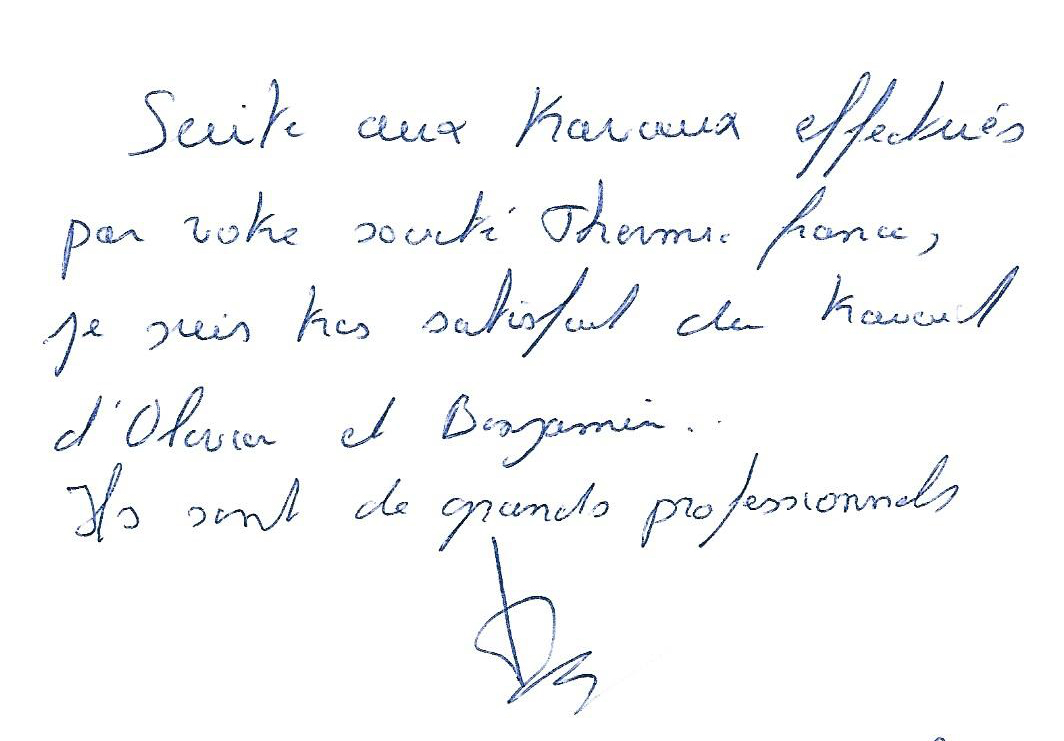 Suite aux travaux effectués
par votre société Thermic france,
je suis très satisfait du travail
d'Olivier et Benjamin..
Ils sont de grands professionnels